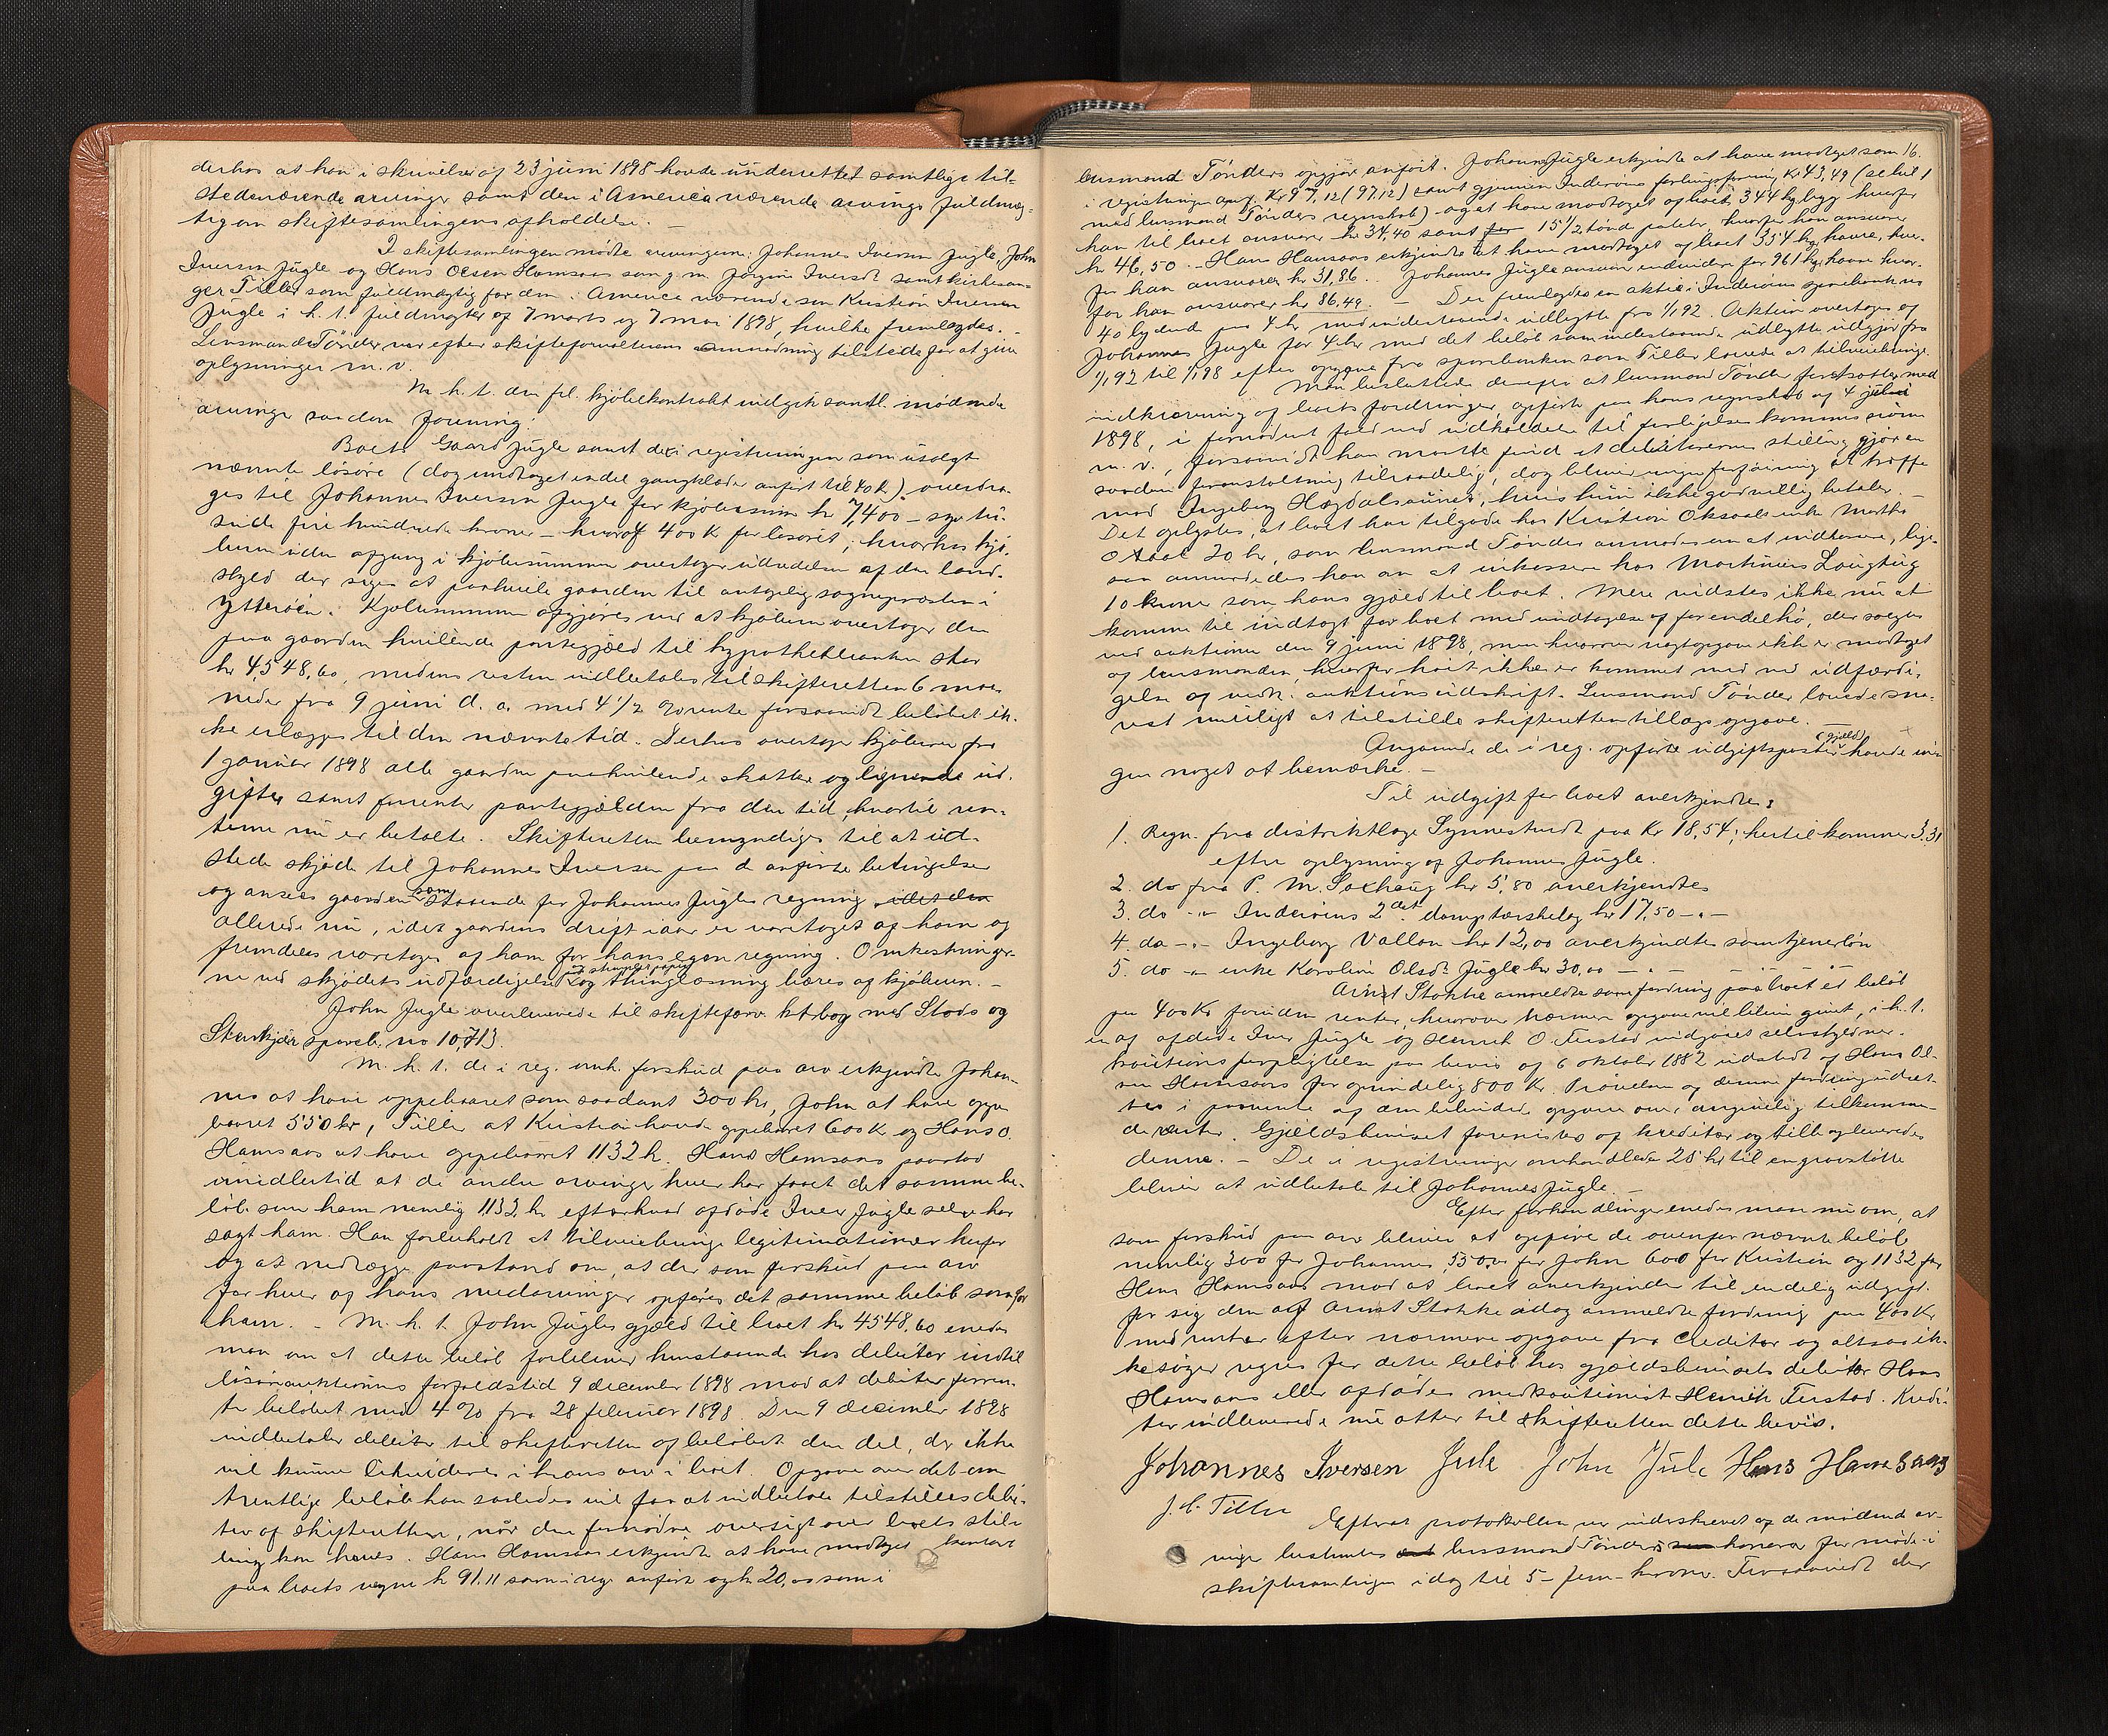 derhos at han i skrivelse af 23 juni 1898 havde underrettet samtlige til-
stedeværende arvinger samt den i America værende arvings fuldmæg-
tig om skiftesamlingens afholdelse. —
I skiftesamlingen mødte arvingerne: Johannes Iversen Jugle, John
Iversen Jugle og Hans Olsen Hamsaas som g. m. Jørgine Iversdt samt kirkesan-
ger Tiller som fuldmægtig for den i America værende søn Kristian Iversen
Jugle i h. t. fuldmagter af 7 marts og 7 mai 1898, hvilke fremlagdes. -
Lensmand Tønder var efter skifteforvalterens anmodning tilstede for at give
oplysninger m. v.
M. h. t. den frl. kjøbekontrakt indgik samtl. mødende
arvinger saadan forening:
Boets Gaard Jugle samt de i registreringen som usolgt
nævnte løsøre (dog undtaget endel gangklæder anført til 40 kr) overdra-
ges til Johannes Iversen Jugle for kjøbesum kr 7,400 - syv tu-
sinde fire hundrede kroner - hvoraf 400 K for løsøret; hvorhos kjø-
beren uden afgang i kjøbesummen overtager udredelsen af den land-
skyld der siges at paahvile gaarden til antagelig sognepresten i
Ytterøen. Kjøbesummen opgjøres ved at kjøberen overtager den
paa gaarden hvilende pantegjæld til hypothekbanken stor
kr 4,548,60, medens resten indbetales til skifteretten 6 maa-
neder fra 9 juni d. a. med 4 1/2 % rente forsaavidt beløbet ik-
ke erlægges til den nævnte tid. Derhos overtager kjøberen fra
1 januar 1898 alle gaarden paahvilende skatter og lignende ud-
gifter samt forrenter pantegjælden fra den tid, hvortil ren-
terne nu er betalte. Skifteretten bemyndiges til at ud-
stede skjøde til Johannes Iversen paa de anførte betingelser
og ansees gaarden som staaende for Johannes Jugles regning idet den
allerede nu, idet gaardens drift iaar er varetaget af ham og
fremdeles varetages af ham for hans egen regning. Omkostninger-
ne ved skjødets udfærdigelse og stempletpapir og thinglæsning bæres af kjøberen. -
John Jugle overleverede til skifteforv. ktrbog med Stods og
Stenkjær spareb. no 10,713.
M. h. t. de i reg. omh. forskud paa arv erkjendte Johan-
nes at have oppebaaret som saadant 300 kr, John at have oppe-
baaret 550 kr, Tiller at Kristian havde oppebaaret 600 K og Hans O.
Hamsaas at have oppebaaret 1132 k. Hans Hamsaas paastod
imidlertid at de andre arvinger hver har faaet det samme be-
løb som ham nemlig 1132 kr efter hvad afdøde Iver Jugle selv har
sagt ham. Han forbeholdt at tilveiebringe legitimationer herfor
og at nedlægge paastand om, at der som forskud paa arv
for hver af hans medarvinger opføres det samme beløb som for
ham. - M. h. t. John Jugles gjæld til boet kr 4548,60 enedes
man om at dette beløb forbliver henstaaende hos debitor indtil
løsøreauktionens forfaldstid 9 december 1898 mod at debitor forren-
ter beløbet med 4 % fra 28 februar 1898. Den 9 december 1898
indbetaler debitor til skifteretten af beløbet den del, der ikke
vil kunne likvideres i hans arv i boet. Opgave over det om-
trentlige beløb han saaledes vil faa at indbetale tilstilles debi-
tor af skifteretten, når den fornødne oversigt over boets stil-
ling kan haves. Hans Hamsaas erkjendte at have modtaget kontant
paa boets vegne kr 91,11 som i reg. anført og kr 20,00 som i
16.
lensmand Tønders opgjør anført. Johannes Jugle erkjendte at have modtaget som
i registreringen opf. Kr 97,12 (97.12) samt gjennem Inderøens forbrugsforening Kr 43,49 (se bil 1
med lensmand Tønders regnskab) og at have modtaget af boet 344 kg byg hvorfor
han til boet ansvarer kr 34,40 samt for 15 1/2 tønd. poteter hvorfor han ansvarer
kr 46,50. - Hans Hamsaas erkjendte at have modtaget af boet 354 kg havre, hvor-
for han ansvarer kr 31,86. Johannes Jugle ansvarer endvidere for 961 kg havre hvor-
for han ansvarer kr 86,49. - Der fremlagdes en aktie i Inderøens sparebank no
40 lydende paa 4 kr med indestaaende udbytte fra 1/1 92. Aktien overtages af
Johannes Jugle for 4 kr med det beløb som indestaaende udbytte udgjør fra
1/1 92 til 1/1 98 efter opgave fra sparebanken som Tiller lovede at tilveiebringe.
Man besluttede derefter at lensmand Tønder fortsætter med
inddrivning af boets fordringer, opførte paa hans regnskab af 4 juli
1898, i fornødent fald ved indkaldelse til forligelseskommissionen
m. v., forsaavidt han maatte finde at debitorernes stilling gjør en
saadan foranstaltning tilraadelig, dog bliver ingen forføining at træffe
mod Ingeborg Hægdalsaunet, hvis hun ikke godvillig betaler. -
Det oplystes, at boet har tilgode hos Kristian Oksaals enke Martha
Oxaal 20 kr, som lensmand Tønder anmodes om at inddrive, lige-
saa anmodedes han om at inkassere hos Martinus Langtug
10 kroner som hans gjæld til boet. Mere vidstes ikke nu at
komme til indtægt for boet med undtagelse af for endel hø, der solgtes
ved auktionen den 9 juni 1898, men hvorover vægtopgave ikke er modtaget
af lensmanden, hvorfor høit ikke er kommet med ved udfærdi-
gelse af vedk. auktionsudskrift. Lensmand Tønder lovede sna-
rest muligt at tilstille skifteretten tillægsopgave. —
Angaaende de i reg. opførte udgiftsposter (gjæld) havde in-
gen noget at bemærke. —
Til udgift for boet anerkjendtes:
1. Regn. fra distriktlæge Synnestvedt paa Kr 18,54; hertil kommer 3.31
efter oplysning af Johannes Jugle.
2. do fra P. M. Saxhaug kr 5,80 anerkjendtes
3. do -"- Inderøens 2det damptærskelag kr 17,50 -"-
4. do -"- Ingeborg Vallan kr 12,00 anerkjendtes som tjenerløn
5. do -"- enke Karoline Olsdt Jugle kr 30,00 -"- -"-
Arnt Stokke anmeldte som fordring paa boet et beløb
paa 400 Kr foruden renter, hvorover nærmere opgave vil blive givet, i h. t.
en af afdøde Iver Jugle og Henrik O. Ferstad indgaaet selvskyldner-
kautionsforpligtelse paa bevis af 6 oktober 1882 udstedt af Hans Ol-
sen Hamsaas for oprindelig 800 Kr. Prøvelsen af denne fordring udsæt-
tes i paavente af den bebudede opgave om, angivelig tilkommen-
de renter. Gjældsbeviset forevistes af kreditor og tilbageleveredes
denne. - De i registreringen omhandlede 25 kr til en gravstøtte
bliver at udbetale til Johannes Jugle. —
Efter forhandlinger enedes man nu om, at
som forskud paa arv bliver at opføre de ovenfor nævnte beløb
nemlig 300 for Johannes, 550 for John 600 for Kristian og 1132 for
Hans Hamsaas mod at boet anerkjender til endelig udgift
for sig den af Arnt Stokke idag anmeldte fordring paa 400 Kr
med renter efter nærmere opgave fra Creditor og altsaa ik-
ke søger regres for dette beløb hos gjældsbevisets debitor Hans
Hamsaas eller afdødes medkautionist Henrik Ferstad. Kredi-
tor indleverede nu atter til skifteretten dette bevis.
Johannes Iversen Jule John Jule Hans Hamsaas
J. C. Tiller
Efterat protokollen var underskrevet af de mødende ar-
vinger bestemtes lensmand Tønders honorar for møde i
skiftesamlingen idag til 5 - fem - kroner. Forsaavidt der